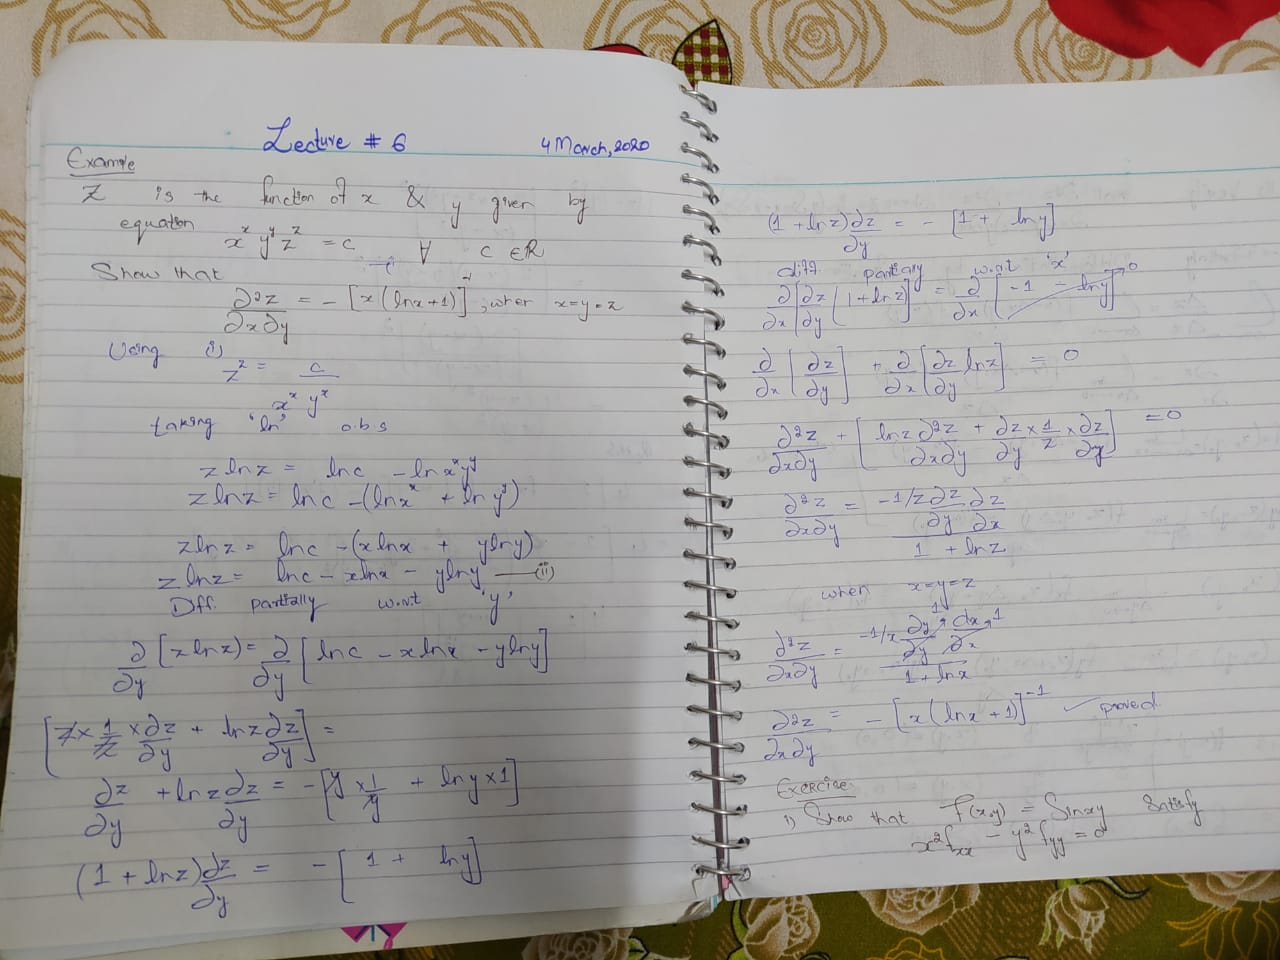 Lecture # 6
4 March, 2020
Example
Z is the function of x & y given by
equation
x^x y^y z^z = c ∀ c ∈ R
Show that
∂²z/∂x∂y = - [x(lnx+1)]^-1, when x=y=z
Using (i)
z^z = c/x^x y^x
taking 'ln' o.b.s
z ln z = ln c - ln x^x y^y
z ln z = ln c - (ln x^x + ln y^y)
z ln z = ln c - (x ln x + y ln y)
z ln z = ln c - x ln x - y ln y —— (ii)
Diff. partially w.r.t 'y'
∂/∂y [z ln z) = ∂/∂y [ln c - x ln x - y ln y]
[z × 1/z × ∂z/∂y + ln z ∂z/∂y] =
∂z/∂y + ln z ∂z/∂y = - [y × 1/y + ln y × 1]
(1 + ln z) ∂z/∂y = - [1 + ln y]
(1 + ln z) ∂z/∂y = - [1 + ln y]
diff partially w.r.t 'x'
∂/∂x [∂z/∂y (1 + ln z] = ∂/∂x [-1 - ln y] 0
∂/∂x [∂z/∂y] + ∂/∂x [∂z/∂y ln z] = 0
∂²z/∂x∂y + [ln z ∂²z/∂x∂y + ∂z/∂y × 1/z × ∂z/∂y] = 0
∂²z/∂x∂y = -1/z ∂z/∂y ∂z/∂x / 1 + ln z
when x=y=z
∂²z/∂x∂y = -1/x ∂y/∂y 1 ∂x/∂x 1 / 1 + ln x
∂²z/∂x∂y = - [x(ln x + 1)]^-1 ✓ proved.
Exercise
1) Show that F(x,y) = Sinxy satisfy
x² fxx - y² fyy = 0